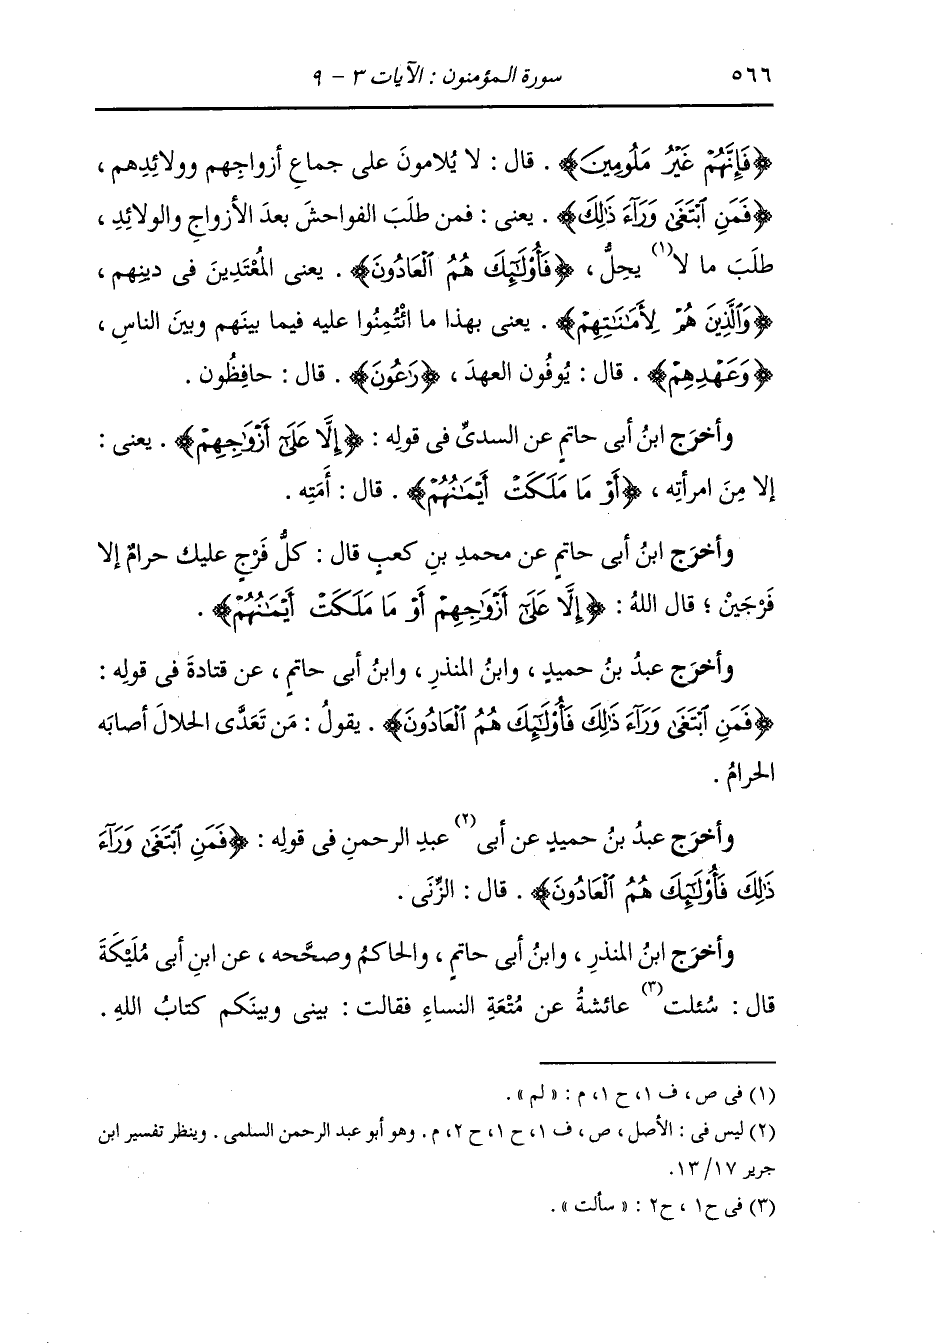 ٥٦٦ سورة المؤمنون : الآيات ٣ - ٩
﴿فَإِنَّهُمْ غَيْرُ مَلُومِينَ﴾ . قال : لا يُلامونَ على جماعِ أزواجِهم وولائدِهم ،
﴿فَمَنِ ٱبْتَغَىٰ وَرَآءَ ذَٰلِكَ﴾ . يعنى : فمن طلَبَ الفواحشَ بعدَ الأزواجِ والولائدِ ،
طلَبَ ما لا(١) يحِلُّ ، ﴿فَأُوْلَٰٓئِكَ هُمُ ٱلْعَادُونَ﴾ . يعنى المُعْتَدِينَ فى دينِهم ،
﴿وَٱلَّذِينَ هُمْ لِأَمَٰنَٰتِهِمْ﴾ . يعنى بهذا ما ائْتُمِنُوا عليه فيما بينَهم وبينَ الناسِ ،
﴿وَعَهْدِهِمْ﴾ . قال : يُوفُون العهدَ ، ﴿رَٰعُونَ﴾ . قال : حافِظُون .
وأخرَج ابنُ أبى حاتمٍ عن السدىِّ فى قولِه : ﴿إِلَّا عَلَىٰٓ أَزْوَٰجِهِمْ﴾ . يعنى :
إلا مِنَ امرأتِه ، ﴿أَوْ مَا مَلَكَتْ أَيْمَٰنُهُمْ﴾ . قال : أَمَتِه .
وأخرَج ابنُ أبى حاتمٍ عن محمدِ بنِ كعبٍ قال : كلُّ فَرْجٍ عليك حرامٌ إلا
فَرْجَينْ ؛ قال اللهُ : ﴿إِلَّا عَلَىٰٓ أَزْوَٰجِهِمْ أَوْ مَا مَلَكَتْ أَيْمَٰنُهُمْ﴾ .
وأخرَج عبدُ بنُ حميدٍ ، وابنُ المنذرِ ، وابنُ أبى حاتمٍ ، عن قتادةَ فى قولِه :
﴿فَمَنِ ٱبْتَغَىٰ وَرَآءَ ذَٰلِكَ فَأُوْلَٰٓئِكَ هُمُ ٱلْعَادُونَ﴾ . يقولُ : مَن تَعَدَّى الحلالَ أصابَه
الحرامُ .
وأخرَج عبدُ بنُ حميدٍ عن أبى(٢) عبدِ الرحمنِ فى قولِه : ﴿فَمَنِ ٱبْتَغَىٰ وَرَآءَ
ذَٰلِكَ فَأُوْلَٰٓئِكَ هُمُ ٱلْعَادُونَ﴾ . قال : الزِّنَى .
وأخرَج ابنُ المنذرِ ، وابنُ أبى حاتمٍ ، والحاكمُ وصحَّحه ، عن ابنِ أبى مُلَيْكَةَ
قال : سُئلت(٣) عائشةُ عن مُتْعَةِ النساءِ فقالت : بينى وبينَكم كتابُ اللهِ .
(١) فى ص ، ف ١، ح ١، م : « لم » .
(٢) ليس فى : الأصل ، ص ، ف ١، ح ١، ح ٢، م . وهو أبو عبد الرحمن السلمى . وينظر تفسير ابن
جرير ١٧/ ١٣.
(٣) فى ح١ ، ح٢ : « سألت » .